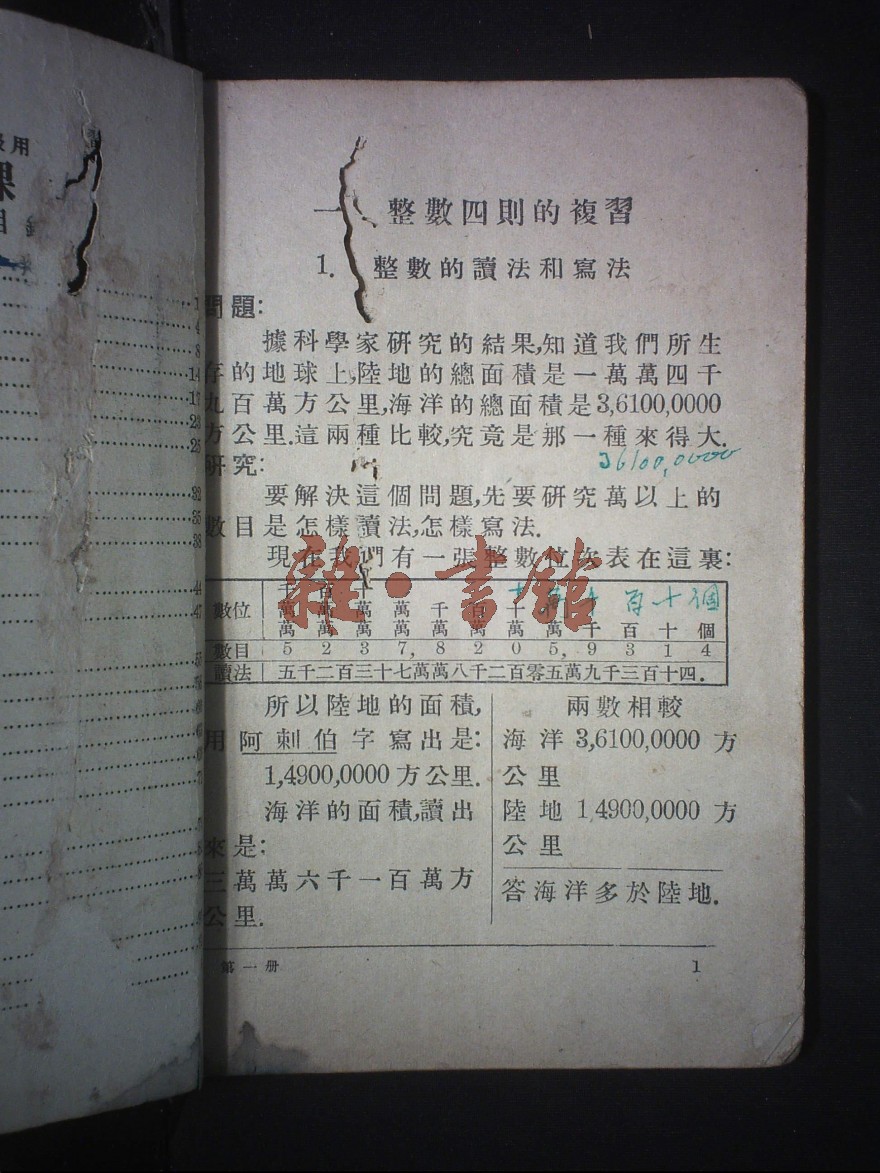 級用
課
目錄
1
4
8
14
17
23
25
32
35
38
44
47
一、整數四則的複習
1. 整數的讀法和寫法
問題：
據科學家研究的結果,知道我們所生
存的地球上,陸地的總面積是一萬萬四千
九百萬方公里,海洋的總面積是3,6100,0000
方公里.這兩種比較,究竟是那一種來得大.
36100,0000
研究：
要解決這個問題,先要研究萬以上的
數目是怎樣讀法,怎樣寫法.
現在我們有一張整數位次表在這裏：
雜·書館
百十個
數位 千萬萬 百萬萬 十萬萬 萬萬 千萬 百萬 十萬 萬 千 百 十 個
數目 5 2 3 7, 8 2 0 5, 9 3 1 4
讀法 五千二百三十七萬萬八千二百零五萬九千三百十四.
所以陸地的面積,
用阿剌伯字寫出是：
1,4900,0000方公里.
海洋的面積,讀出
來是：
三萬萬六千一百萬方
公里.
兩數相較
海洋3,6100,0000方
公里
陸地1,4900,0000方
公里
答海洋多於陸地.
第一册
1